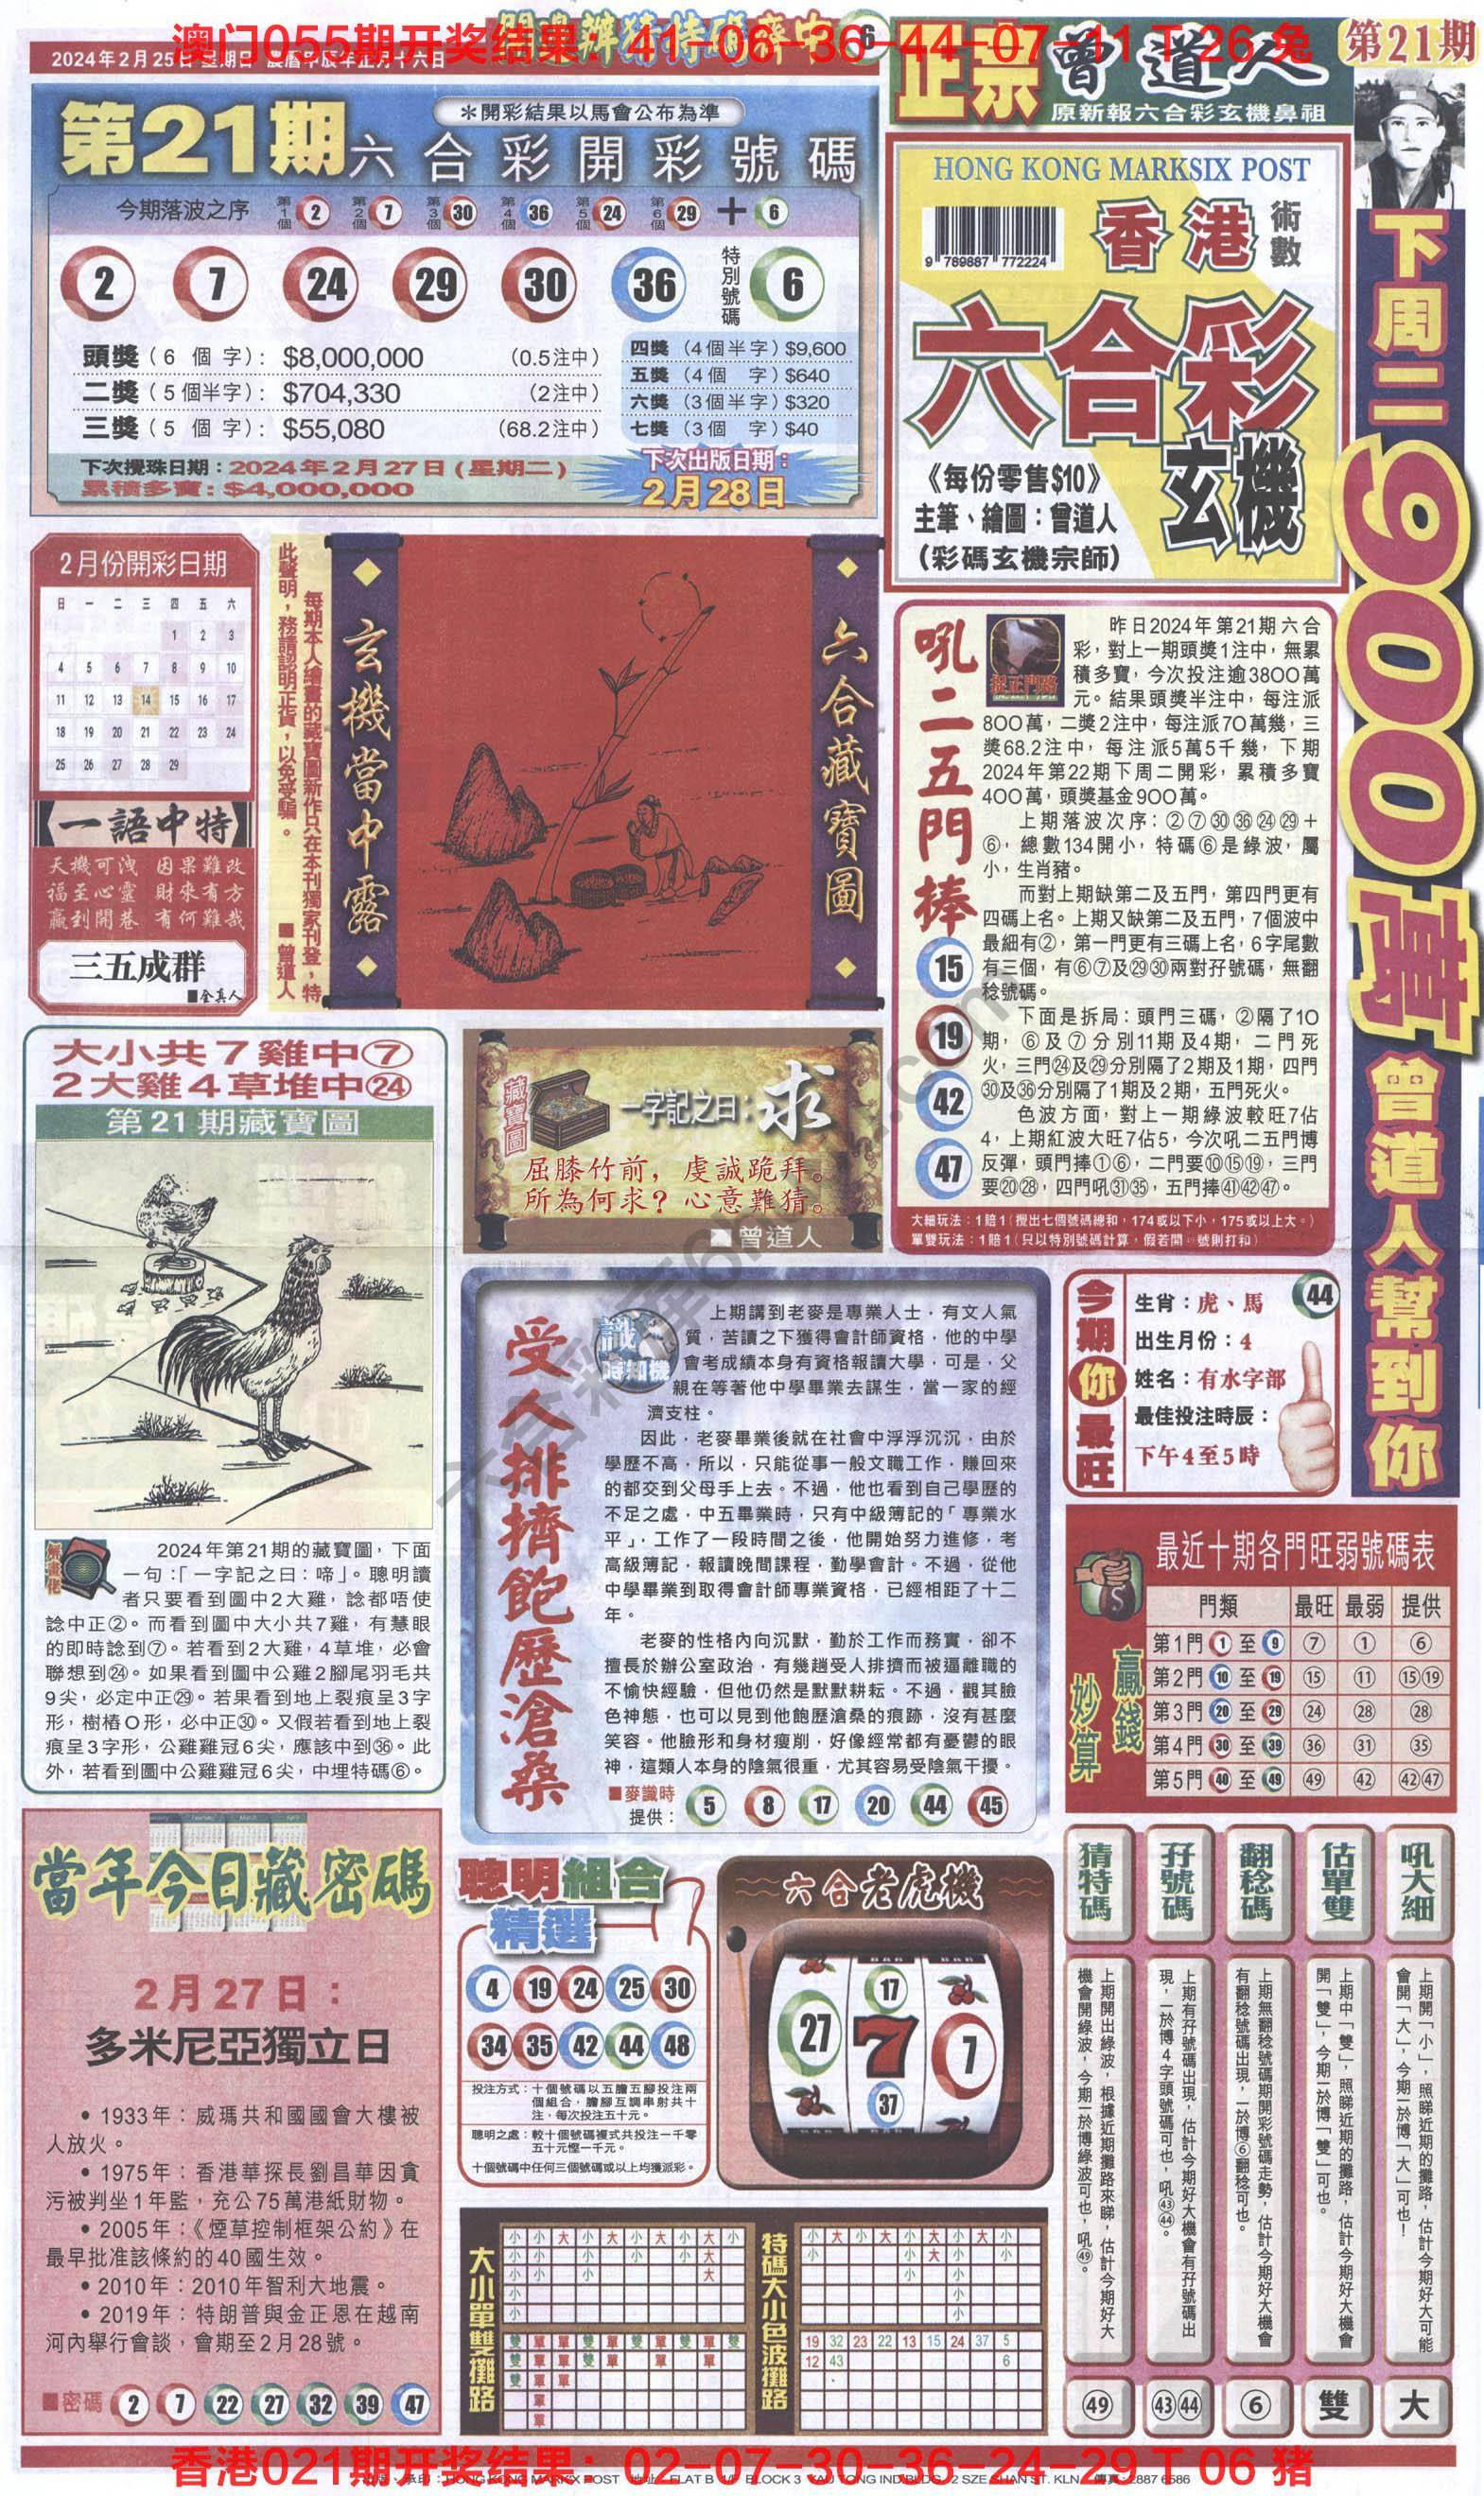 澳门055期开奖结果：41-06-36-44-07-11 T 26 兔
2024年2月25日 星期日 農曆甲辰年正月十六日
第21期
六合彩開彩號碼
＊開彩結果以馬會公布為準
今期落波之序
第1個 2 第2個 7 第3個 30 第4個 36 第5個 24 第6個 29 + 6
2 7 24 29 30 36 特別號碼 6
頭獎（6 個 字）: $8,000,000 (0.5注中)
二獎（5個半字）: $704,330 (2注中)
三獎（5 個 字）: $55,080 (68.2注中)
四獎（4個半字）$9,600
五獎（4個 字）$640
六獎（3個半字）$320
七獎（3個 字）$40
下次攪珠日期：2024年2月27日(星期二)
累積多寶：$4,000,000
下次出版日期：
2月28日
正宗曾道人
原新報六合彩玄機鼻祖
第21期
HONG KONG MARKSIX POST
9 789887 772224
香港術數
六合彩
玄機
《每份零售$10》
主筆、繪圖：曾道人
（彩碼玄機宗師）
下周二900萬曾道人幫到你
2月份開彩日期
日 一 二 三 四 五 六
1 2 3
4 5 6 7 8 9 10
11 12 13 14 15 16 17
18 19 20 21 22 23 24
25 26 27 28 29
【一語中特】
天機可洩 因果難改
福至心靈 財來有方
贏到開巷 有何難哉
三五成群
■全真人
每期本人繪畫的藏寶圖新作只在本刊獨家刊登，特
此聲明，務請認明正貨，以免受騙。 ■曾道人
玄機當中露
六合藏寶圖
吼二五門棒
捉正門路
15
19
42
47
昨日2024年第21期六合
彩，對上一期頭獎1注中，無累
積多寶，今次投注逾3800萬
元。結果頭獎半注中，每注派
800萬，二獎2注中，每注派70萬幾，三
獎68.2注中，每注派5萬5千幾，下期
2024年第22期下周二開彩，累積多寶
400萬，頭獎基金900萬。
上期落波次序：②⑦㉚㊱㉔㉙＋
⑥，總數134開小，特碼⑥是綠波，屬
小，生肖豬。
而對上期缺第二及五門，第四門更有
四碼上名。上期又缺第二及五門，7個波中
最細有②，第一門更有三碼上名，6字尾數
有三個，有⑥⑦及㉙㉚兩對孖號碼，無翻
稔號碼。
下面是拆局：頭門三碼，②隔了10
期，⑥及⑦分別11期及4期，二門死
火，三門㉔及㉙分別隔了2期及1期，四門
㉚及㊱分別隔了1期及2期，五門死火。
色波方面，對上一期綠波較旺7佔
4，上期紅波大旺7佔5，今次吼二五門博
反彈，頭門捧①⑥，二門要⑩⑮⑲，三門
要⑳㉘，四門吼㉛㉟，五門捧㊶㊷㊼。
大細玩法：1賠1（攪出七個號碼總和，174或以下小，175或以上大。）
單雙玩法：1賠1（只以特別號碼計算，假若開 號則打和）
大小共7雞中⑦
2大雞4草堆中㉔
第21期藏寶圖
2024年第21期的藏寶圖，下面
一句：「一字記之曰：啼」。聰明讀
者只要看到圖中2大雞，諗都唔使
諗中正②。而看到圖中大小共7雞，有慧眼
的即時諗到⑦。若看到2大雞，4草堆，必會
聯想到㉔。如果看到圖中公雞2腳尾羽毛共
9尖，必定中正㉙。若果看到地上裂痕呈3字
形，樹樁O形，必中正㉚。又假若看到地上裂
痕呈3字形，公雞雞冠6尖，應該中到㊱。此
外，若看到圖中公雞雞冠6尖，中埋特碼⑥。
藏寶圖
一字記之曰：求
屈膝竹前，虔誠跪拜。
所為何求？心意難猜。
■曾道人
受人排擠飽歷滄桑
識人時知機
上期講到老麥是專業人士，有文人氣
質，苦讀之下獲得會計師資格，他的中學
會考成績本身有資格報讀大學，可是，父
親在等著他中學畢業去謀生，當一家的經
濟支柱。
因此，老麥畢業後就在社會中浮浮沉沉，由於
學歷不高，所以，只能從事一般文職工作，賺回來
的都交到父母手上去。不過，他也看到自己學歷的
不足之處，中五畢業時，只有中級簿記的「專業水
平」，工作了一段時間之後，他開始努力進修，考
高級簿記，報讀晚間課程，勤學會計。不過，從他
中學畢業到取得會計師專業資格，已經相距了十二
年。
老麥的性格內向沉默，勤於工作而務實，卻不
擅長於辦公室政治，有幾趟受人排擠而被逼離職的
不愉快經驗，但他仍然是默默耕耘。不過，觀其臉
色神態，也可以見到他飽歷滄桑的痕跡，沒有甚麼
笑容。他臉形和身材瘦削，好像經常都有憂鬱的眼
神，這類人本身的陰氣很重，尤其容易受陰氣干擾。
■麥識時
提供： 5 8 17 20 44 45
今期你最旺
生肖：虎、馬 44
出生月份：4
姓名：有水字部
最佳投注時辰：
下午4至5時
最近十期各門旺弱號碼表
贏錢妙算
門類 最旺 最弱 提供
第1門 1 至 9 ⑦ ① ⑥
第2門 10 至 19 ⑮ ⑪ ⑮⑲
第3門 20 至 29 ㉔ ㉘ ㉘
第4門 30 至 39 ㊱ ㉛ ㉟
第5門 40 至 49 ㊾ ㊷ ㊷㊼
當年今日藏密碼
2月27日：
多米尼亞獨立日
• 1933年：威瑪共和國國會大樓被
人放火。
• 1975年：香港華探長劉昌華因貪
污被判坐1年監，充公75萬港紙財物。
• 2005年：《煙草控制框架公約》在
最早批准該條約的40國生效。
• 2010年：2010年智利大地震。
• 2019年：特朗普與金正恩在越南
河內舉行會談，會期至2月28號。
■密碼 2 7 22 27 32 39 47
聰明組合
精選
4 19 24 25 30
34 35 42 44 48
投注方式：十個號碼以五膽五腳投注兩
個組合，膽腳互調串射共十
注，每次投注五十元。
聰明之處：較十個號碼複式共投注一千零
五十元慳一千元。
十個號碼中任何三個號碼或以上均獲派彩。
六合老虎機
17
27 7 7
37
大小單雙攤路
小 小 大 小 大 小 大 小 大 小
小 小 小 小 小 大
小 小 小 大
小
小
雙 單 單 雙 單 雙 單 雙 單 雙
雙 單 單 雙 單 單 單
雙 單 單
單
單
特碼大小色波攤路
小 大 小 小 大 小 大 小 小
小 小 大 小 小
小 小
小
小
19 32 23 22 13 15 24 37 5
12 43 6
猜特碼
上期開出綠波，根據近期攤路來睇，估計今期好大
機會開綠波，今期一於博綠波可也，吼㊾。
㊾
孖號碼
上期有孖號碼出現，估計今期好大機會有孖號碼出
現，一於博4字頭號碼可也，吼㊸㊹。
㊸㊹
翻稔碼
上期無翻稔號碼期開彩號碼走勢，估計今期好大機會
有翻稔號碼出現，一於博⑥翻稔可也。
⑥
估單雙
上期中「雙」，照睇近期的攤路，估計今期好大機會
開「雙」，今期一於博「雙」可也。
雙
吼大細
上期開「小」，照睇近期的攤路，估計今期好大可能
會開「大」，今期一於博「大」可也！
大
香港021期开奖结果：02-07-30-36-24-29 T 06 猪